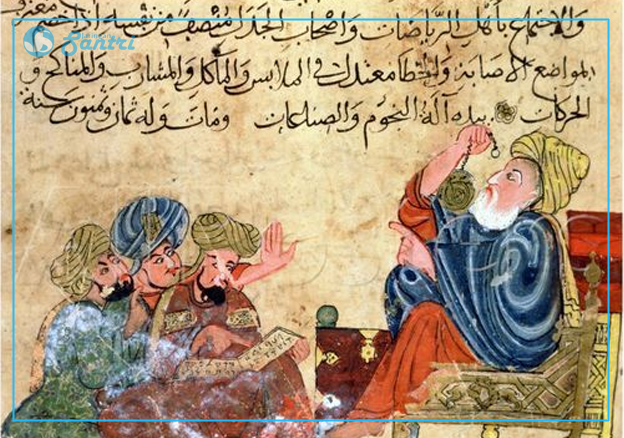 Santri
والاجتماع باهل الرياضات واصحاب الجدل منصف من نفسه اذا خصم
المواضع الاصابة والخطا معتدل في الملابس والمآكل والمشارب والمناكح و
الحركات بيده آلة النجوم والصناعات ومات وله ثمان سنة